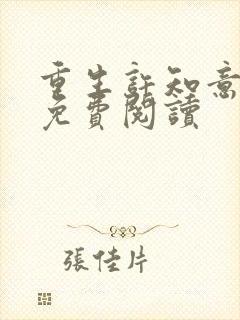 重生許知意
免費閱讀
張佳片